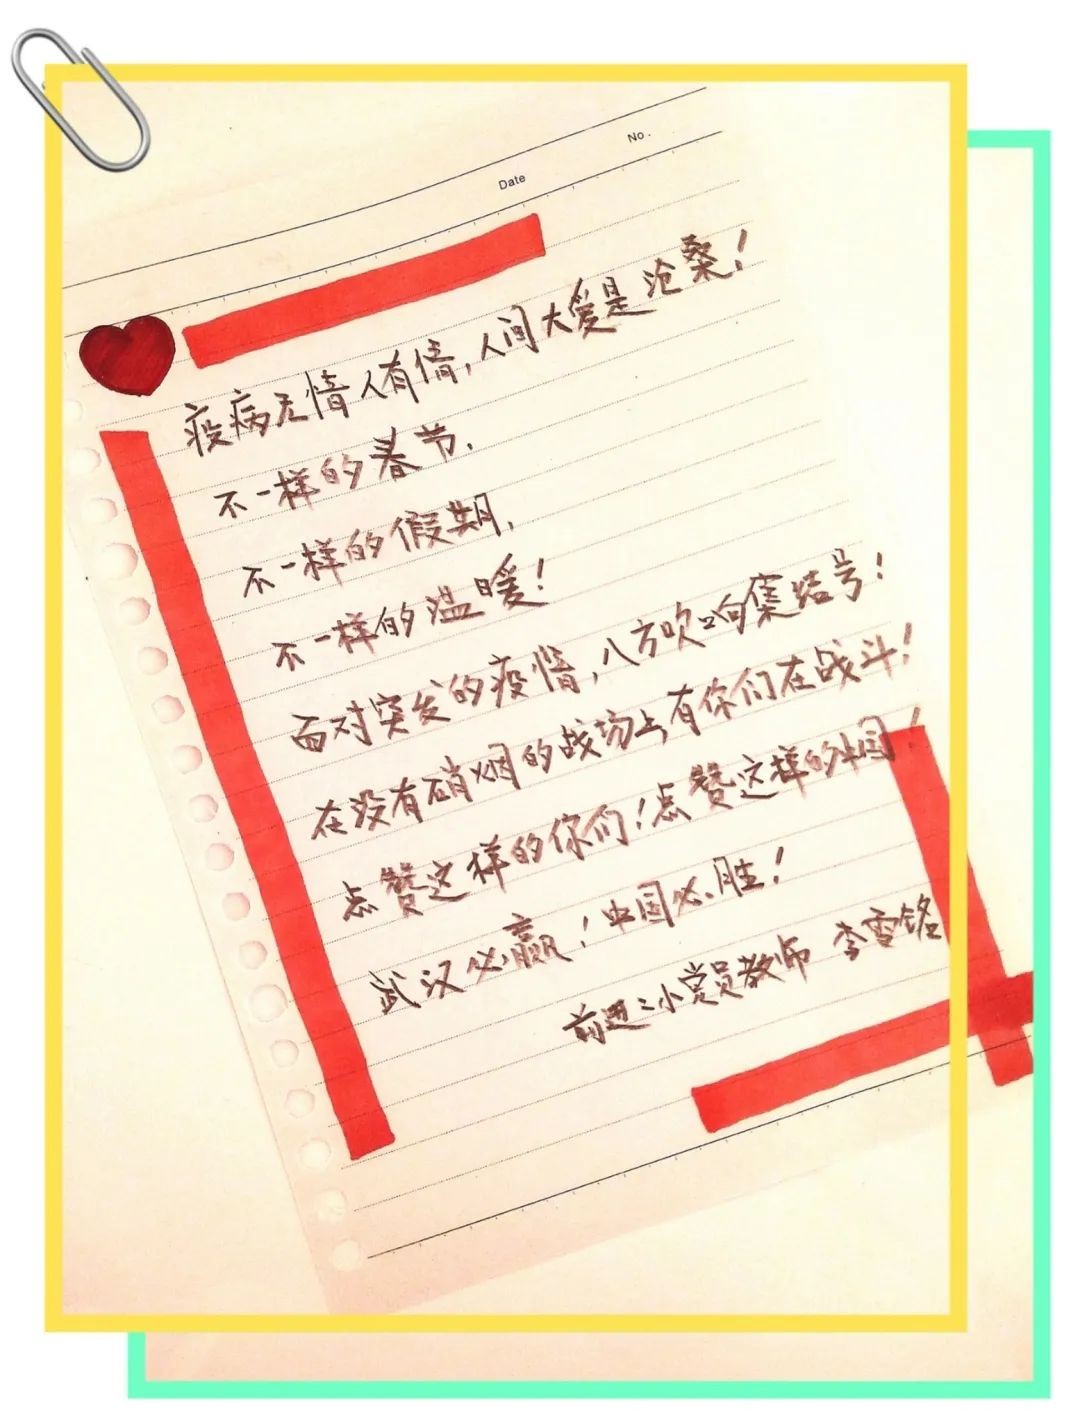 No.
Date
疫病无情人有情,人间大爱是沧桑!
不一样的春节.
不一样的假期.
不一样的温暖!
面对突发的疫情,八方吹响集结号!
在没有硝烟的战场上有你们在战斗!
点赞这样的你们!点赞这样的中国!
武汉必赢!中国必胜!
前进二小党员教师 李雪铭